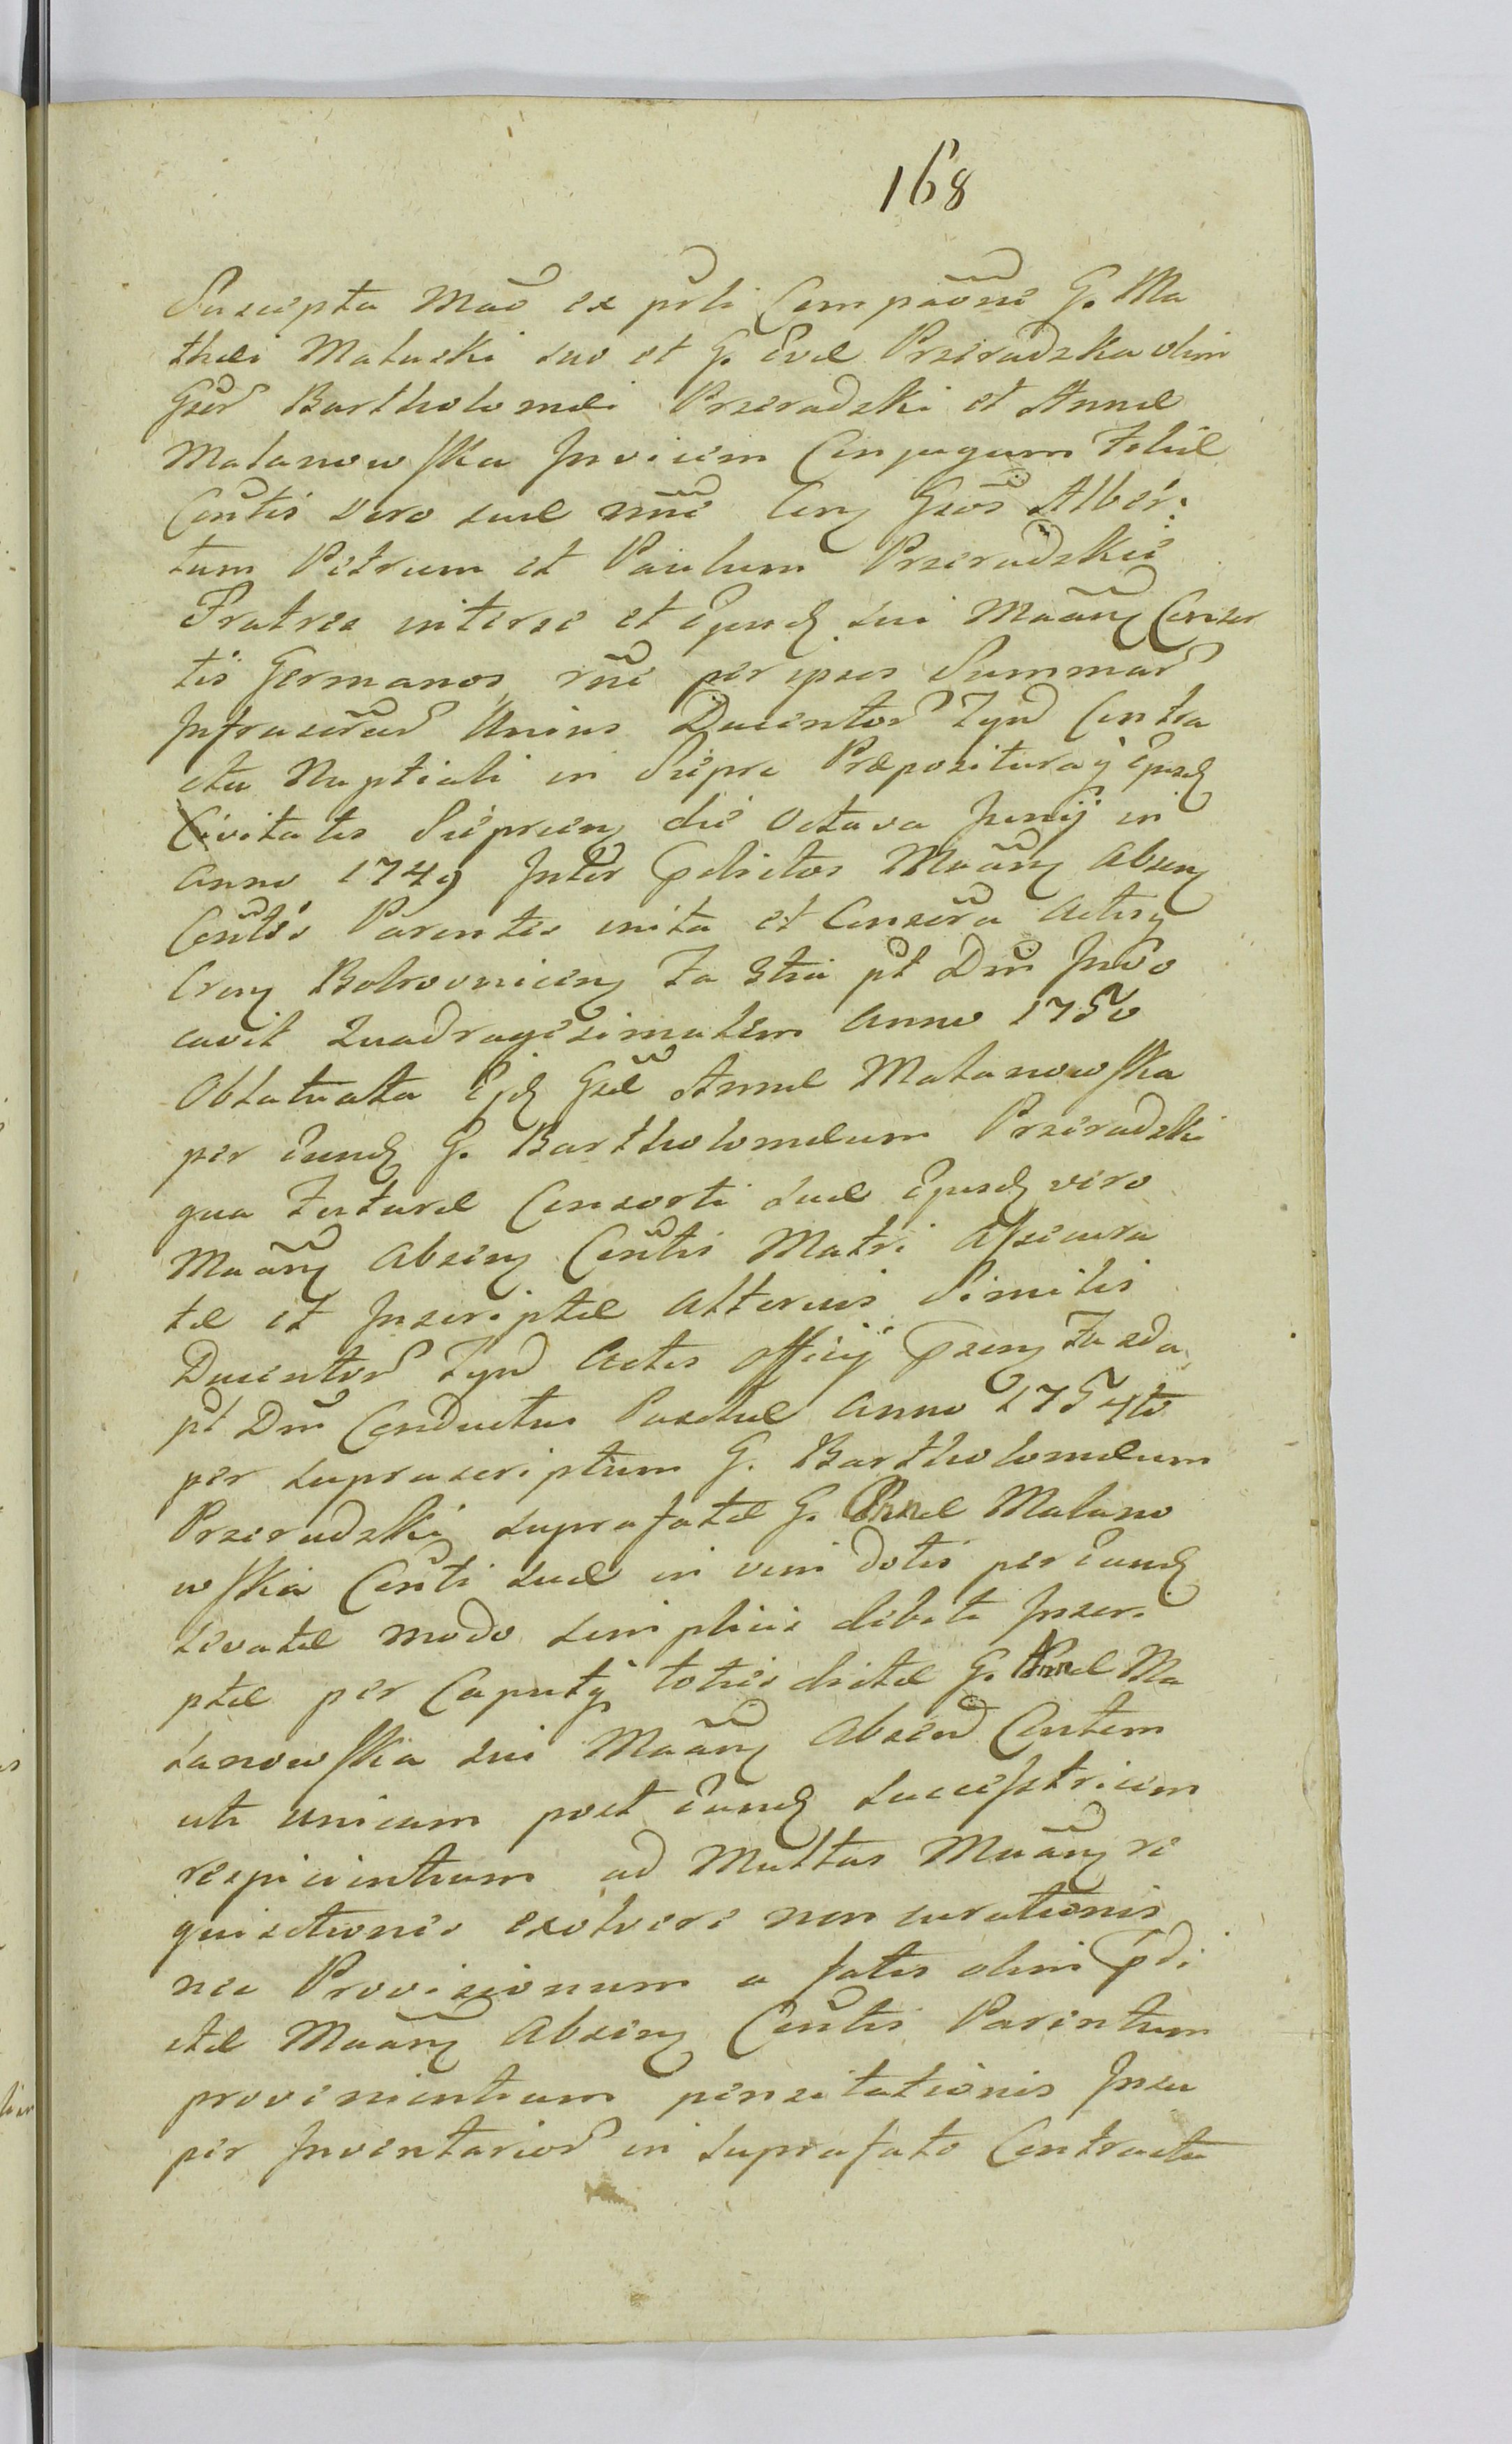 168
Suscepta Mao ex prli Compaone G. Ma
thei Maluski suo et G. Evae Przeradzka olim
Gser Bartholomaei Przeradzki et Annae
Malanowska Invicem Conjugum Filiae
Contis vero suae nnie Conz Gsos Alber:
tum Petrum et Paulum Przeradzkie
Fratres interse et Ejusd sui Maanz Conser
tis Germanos rne per ipsos Summar
Infrascrar Unius Ducentor Tynf Contra
ctu Nuptiali in Sieprc Praepozituray Ejusd
Civitatis Sieprcenz die Octava Junij in
Anno 1749 Inter pdictos Maanz Absenz
Contis Parentes inita et Conscra Actisq
Crenz Bobrovnicenz Fa 3tia pt Dm Invo
cavit Quadragesimalem Anno 1750
Oblatuata Ejd Gsae Annae Malanowska
per Eund G. Bartholomaeum Przeradzki
qua Futurae Consorti suae Ejusd vero
Maanz Absenz Contis Matri Assecura
tae et Inscriptae Alterius Similis
Ducentor Tynf Actis Officij psenz Fa 2da
pt Dm Conductus Paschae Anno 1754to
per suprascriptum G. Bartholomaeum
Przeradzki suprafatae G. Annae Malano
wska Conti suae in vim dotis per Eand
levatae modo simplicis debiti Inscri
ptae per Caputq toties dictae G. Annae Ma
lanowska sui Maanz Absend Contem
uti unicam post Eand Successtricem
respicientium ad Multas Maanz re
quisitiones exolvere non curationis
nec Provisionum a fatis olim pdi
ctae Maanz Absenz Contis Parentum
provenientium penzitationis Insu
per Inventarior in suprafato Contractu